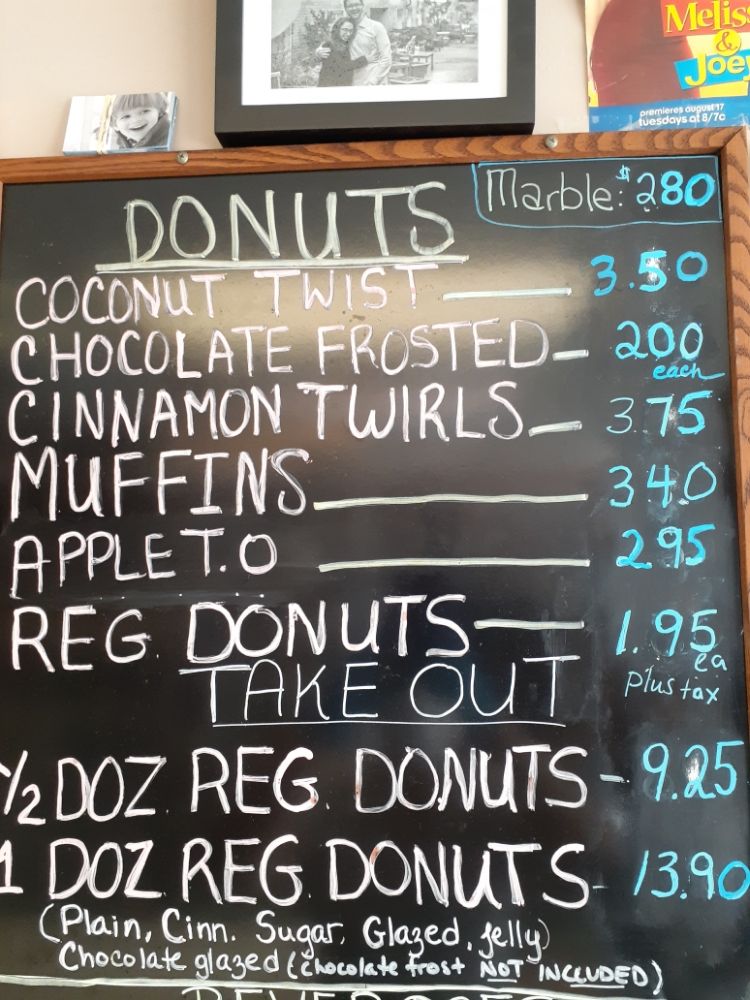 Meliss
&
Joey
premieres august 17
tuesdays at 8/7c
Marble: $280
DONUTS
COCONUT TWIST — 3.50
CHOCOLATE FROSTED — 200
each
CINNAMON TWIRLS — 3.75
MUFFINS — 340
APPLE T.O — 295
REG. DONUTS — 1.95
ea
plus tax
TAKE OUT
1/2 DOZ REG. DONUTS - 9.25
1 DOZ REG. DONUTS - 13.90
(Plain, Cinn. Sugar, Glazed, jelly)
Chocolate glazed (chocolate frost NOT INCLUDED)